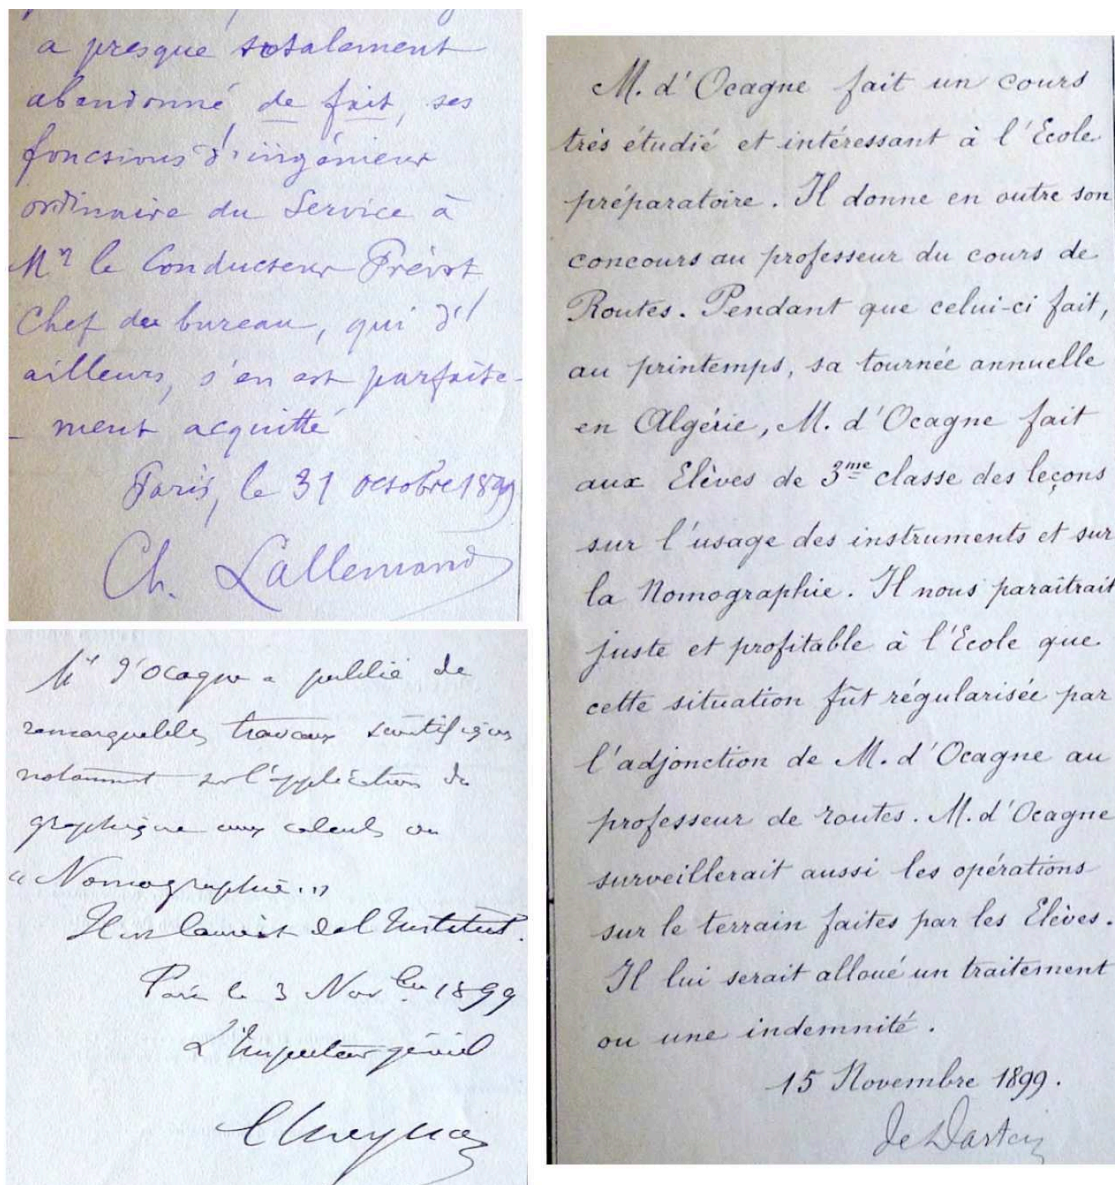 a presque totalement
abandonné, de fait, ses
fonctions d'ingénieur
ordinaire du Service à
Mr le Conducteur Prévot,
Chef du bureau, qui d'
ailleurs, s'en est parfaite-
-ment acquitté
Paris, le 31 octobre 1899
Ch. Lallemand
Mr d'Ocagne a publié de
remarquables travaux scientifiques
notamment sur l'application du
graphique aux calculs ou
"Nomographie."
Il est lauréat de l'Institut.
Paris le 3 Novbre 1899
L'Inspecteur général
M. d'Ocagne fait un cours
très étudié et intéressant à l'Ecole
préparatoire. Il donne en outre son
concours au professeur du cours de
Routes. Pendant que celui-ci fait,
au printemps, sa tournée annuelle
en Algérie, M. d'Ocagne fait
aux Elèves de 3me classe des leçons
sur l'usage des instruments et sur
la Nomographie. Il nous paraîtrait
juste et profitable à l'Ecole que
cette situation fût régularisée par
l'adjonction de M. d'Ocagne au
professeur de routes. M. d'Ocagne
surveillerait aussi les opérations
sur le terrain faites par les Elèves.
Il lui serait alloué un traitement
ou une indemnité.
15 Novembre 1899.
de Dartein